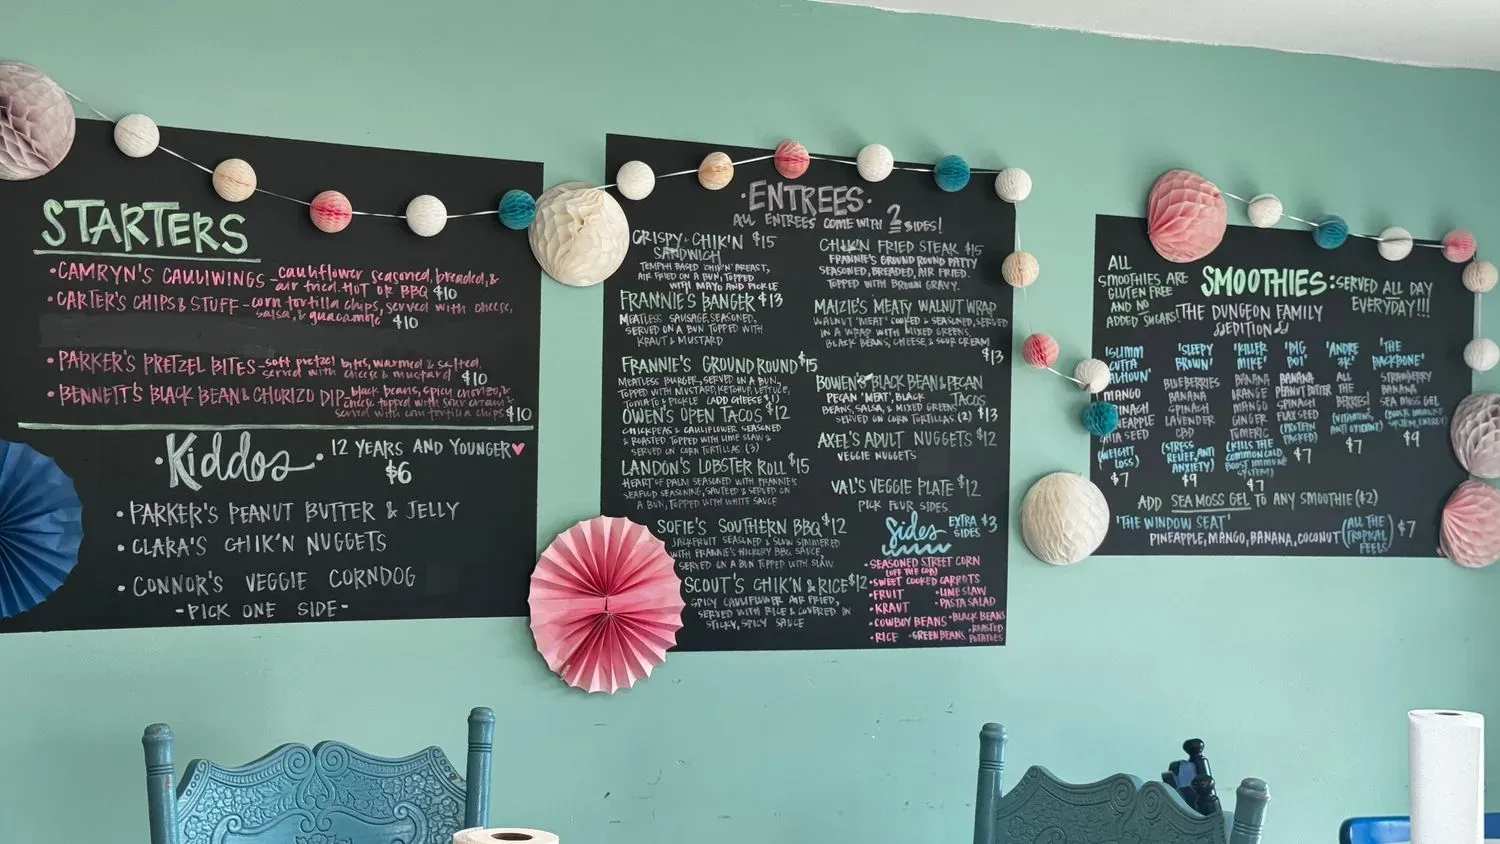 STARTERS
•CAMRYN'S CAULIWINGS - cauliflower seasoned, breaded, &
air fried. HOT OR BBQ $10
•CARTER'S CHIPS & STUFF - corn tortilla chips, served with cheese,
salsa, & guacamole $10
•PARKER'S PRETZEL BITES - soft pretzel bites, warmed & salted,
served with cheese & mustard $10
•BENNETT'S BLACK BEAN & CHORIZO DIP - black beans, spicy chorizo, &
cheese topped with sour cream &
served with corn tortilla chips $10
•Kiddos• 12 YEARS AND YOUNGER
$6
•PARKER'S PEANUT BUTTER & JELLY
•CLARA'S CHIK'N NUGGETS
•CONNOR'S VEGGIE CORNDOG
-PICK ONE SIDE-
•ENTREES•
ALL ENTREES COME WITH 2 SIDES!
CRISPY CHIK'N $15
SANDWICH
TEMPEH BASED CHIK'N BREAST,
AIR FRIED ON A BUN, TOPPED
WITH MAYO AND PICKLE
FRANNIE'S BANGER $13
MEATLESS SAUSAGE, SEASONED,
SERVED ON A BUN TOPPED WITH
KRAUT & MUSTARD
FRANNIE'S GROUND ROUND $15
MEATLESS BURGER, SERVED ON A BUN,
TOPPED WITH MUSTARD, KETCHUP, LETTUCE,
TOMATO & PICKLE (ADD CHEESE $1)
OWEN'S OPEN TACOS $12
CHICKPEAS & CAULIFLOWER SEASONED
& ROASTED TOPPED WITH LIME SLAW &
SERVED ON CORN TORTILLAS. (3)
LANDON'S LOBSTER ROLL $15
HEART OF PALM SEASONED WITH FRANNIE'S
SEAFOOD SEASONING, SAUTEED & SERVED ON
A BUN, TOPPED WITH WHITE SAUCE
SOFIE'S SOUTHERN BBQ $12
JACKFRUIT SEASONED & SLOW SIMMERED
WITH FRANNIE'S HICKORY BBQ SAUCE,
SERVED ON A BUN TOPPED WITH SLAW
SCOUT'S CHIK'N & RICE $12
SPICY CAULIFLOWER AIR FRIED,
SERVED WITH RICE & COVERED IN
STICKY, SPICY SAUCE
CHIK'N FRIED STEAK $15
FRANNIE'S GROUND ROUND PATTY
SEASONED, BREADED, AIR FRIED.
TOPPED WITH BROWN GRAVY.
MAIZIE'S MEATY WALNUT WRAP
WALNUT 'MEAT' COOKED & SEASONED, SERVED
IN A WRAP WITH MIXED GREENS,
BLACK BEANS, CHEESE, & SOUR CREAM
$13
BOWEN'S BLACK BEAN & PECAN
TACOS
PECAN 'MEAT', BLACK
BEANS, SALSA, & MIXED GREENS
SERVED ON CORN TORTILLAS. (2) $13
AXEL'S ADULT NUGGETS $12
VEGGIE NUGGETS
VAL'S VEGGIE PLATE $12
PICK FOUR SIDES
Sides EXTRA $3
SIDES
•SEASONED STREET CORN
(OFF THE COB)
•SWEET COOKED CARROTS
•FRUIT •LIME SLAW
•KRAUT •PASTA SALAD
•COWBOY BEANS •BLACK BEANS
•RICE •GREEN BEANS •ROASTED
POTATOES
ALL
SMOOTHIES ARE
GLUTEN FREE
AND NO
ADDED SUGARS!
SMOOTHIES: SERVED ALL DAY
EVERYDAY!!!
THE DUNGEON FAMILY
EDITION
'SUMM
CUTTA
MANGO
SPINACH
CHIA SEED
(WEIGHT
LOSS)
$7
'SLEEPY
BROWN'
BLUEBERRIES
BANANA
SPINACH
LAVENDER
CBD
(STRESS
RELIEF, ANTI
ANXIETY)
$9
'KILLER
MIKE'
BANANA
MANGO
ORANGE
GINGER
TUMERIC
(KILLS THE
COMMON COLD,
BOOST IMMUNE
SYSTEM)
$7
'BIG
BOI'
BANANA
PEANUT BUTTER
SPINACH
FLAX SEED
(PROTEIN
PACKED)
$7
'ANDRE
3K'
ALL
THE
BERRIES!
(VITAMINS,
ANTI OXIDENT)
$7
'THE
BACKBONE'
STRAWBERRY
BANANA
SEA MOSS GEL
$9
ADD SEA MOSS GEL TO ANY SMOOTHIE ($2)
'THE WINDOW SEAT'
PINEAPPLE, MANGO, BANANA, COCONUT (ALL THE
TROPICAL
FEELS) $7